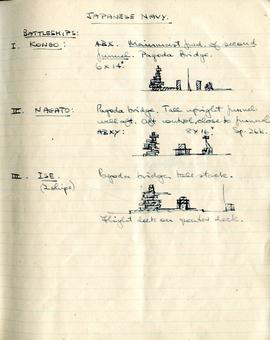 JAPANESE NAVY.
BATTLESHIPS:
I. KONGO: ABX. Mainmast fwd. of second
funnel. Pagoda Bridge.
6 x 14"
II. NAGATO: Pagoda bridge. Tall upright funnel
well aft. Aft control close to funnel
ABXY: 8 x 16" Sp. 26k.
III. ISE (2 ships) Pagoda bridge, tall stack.
Flight deck on quarter deck.